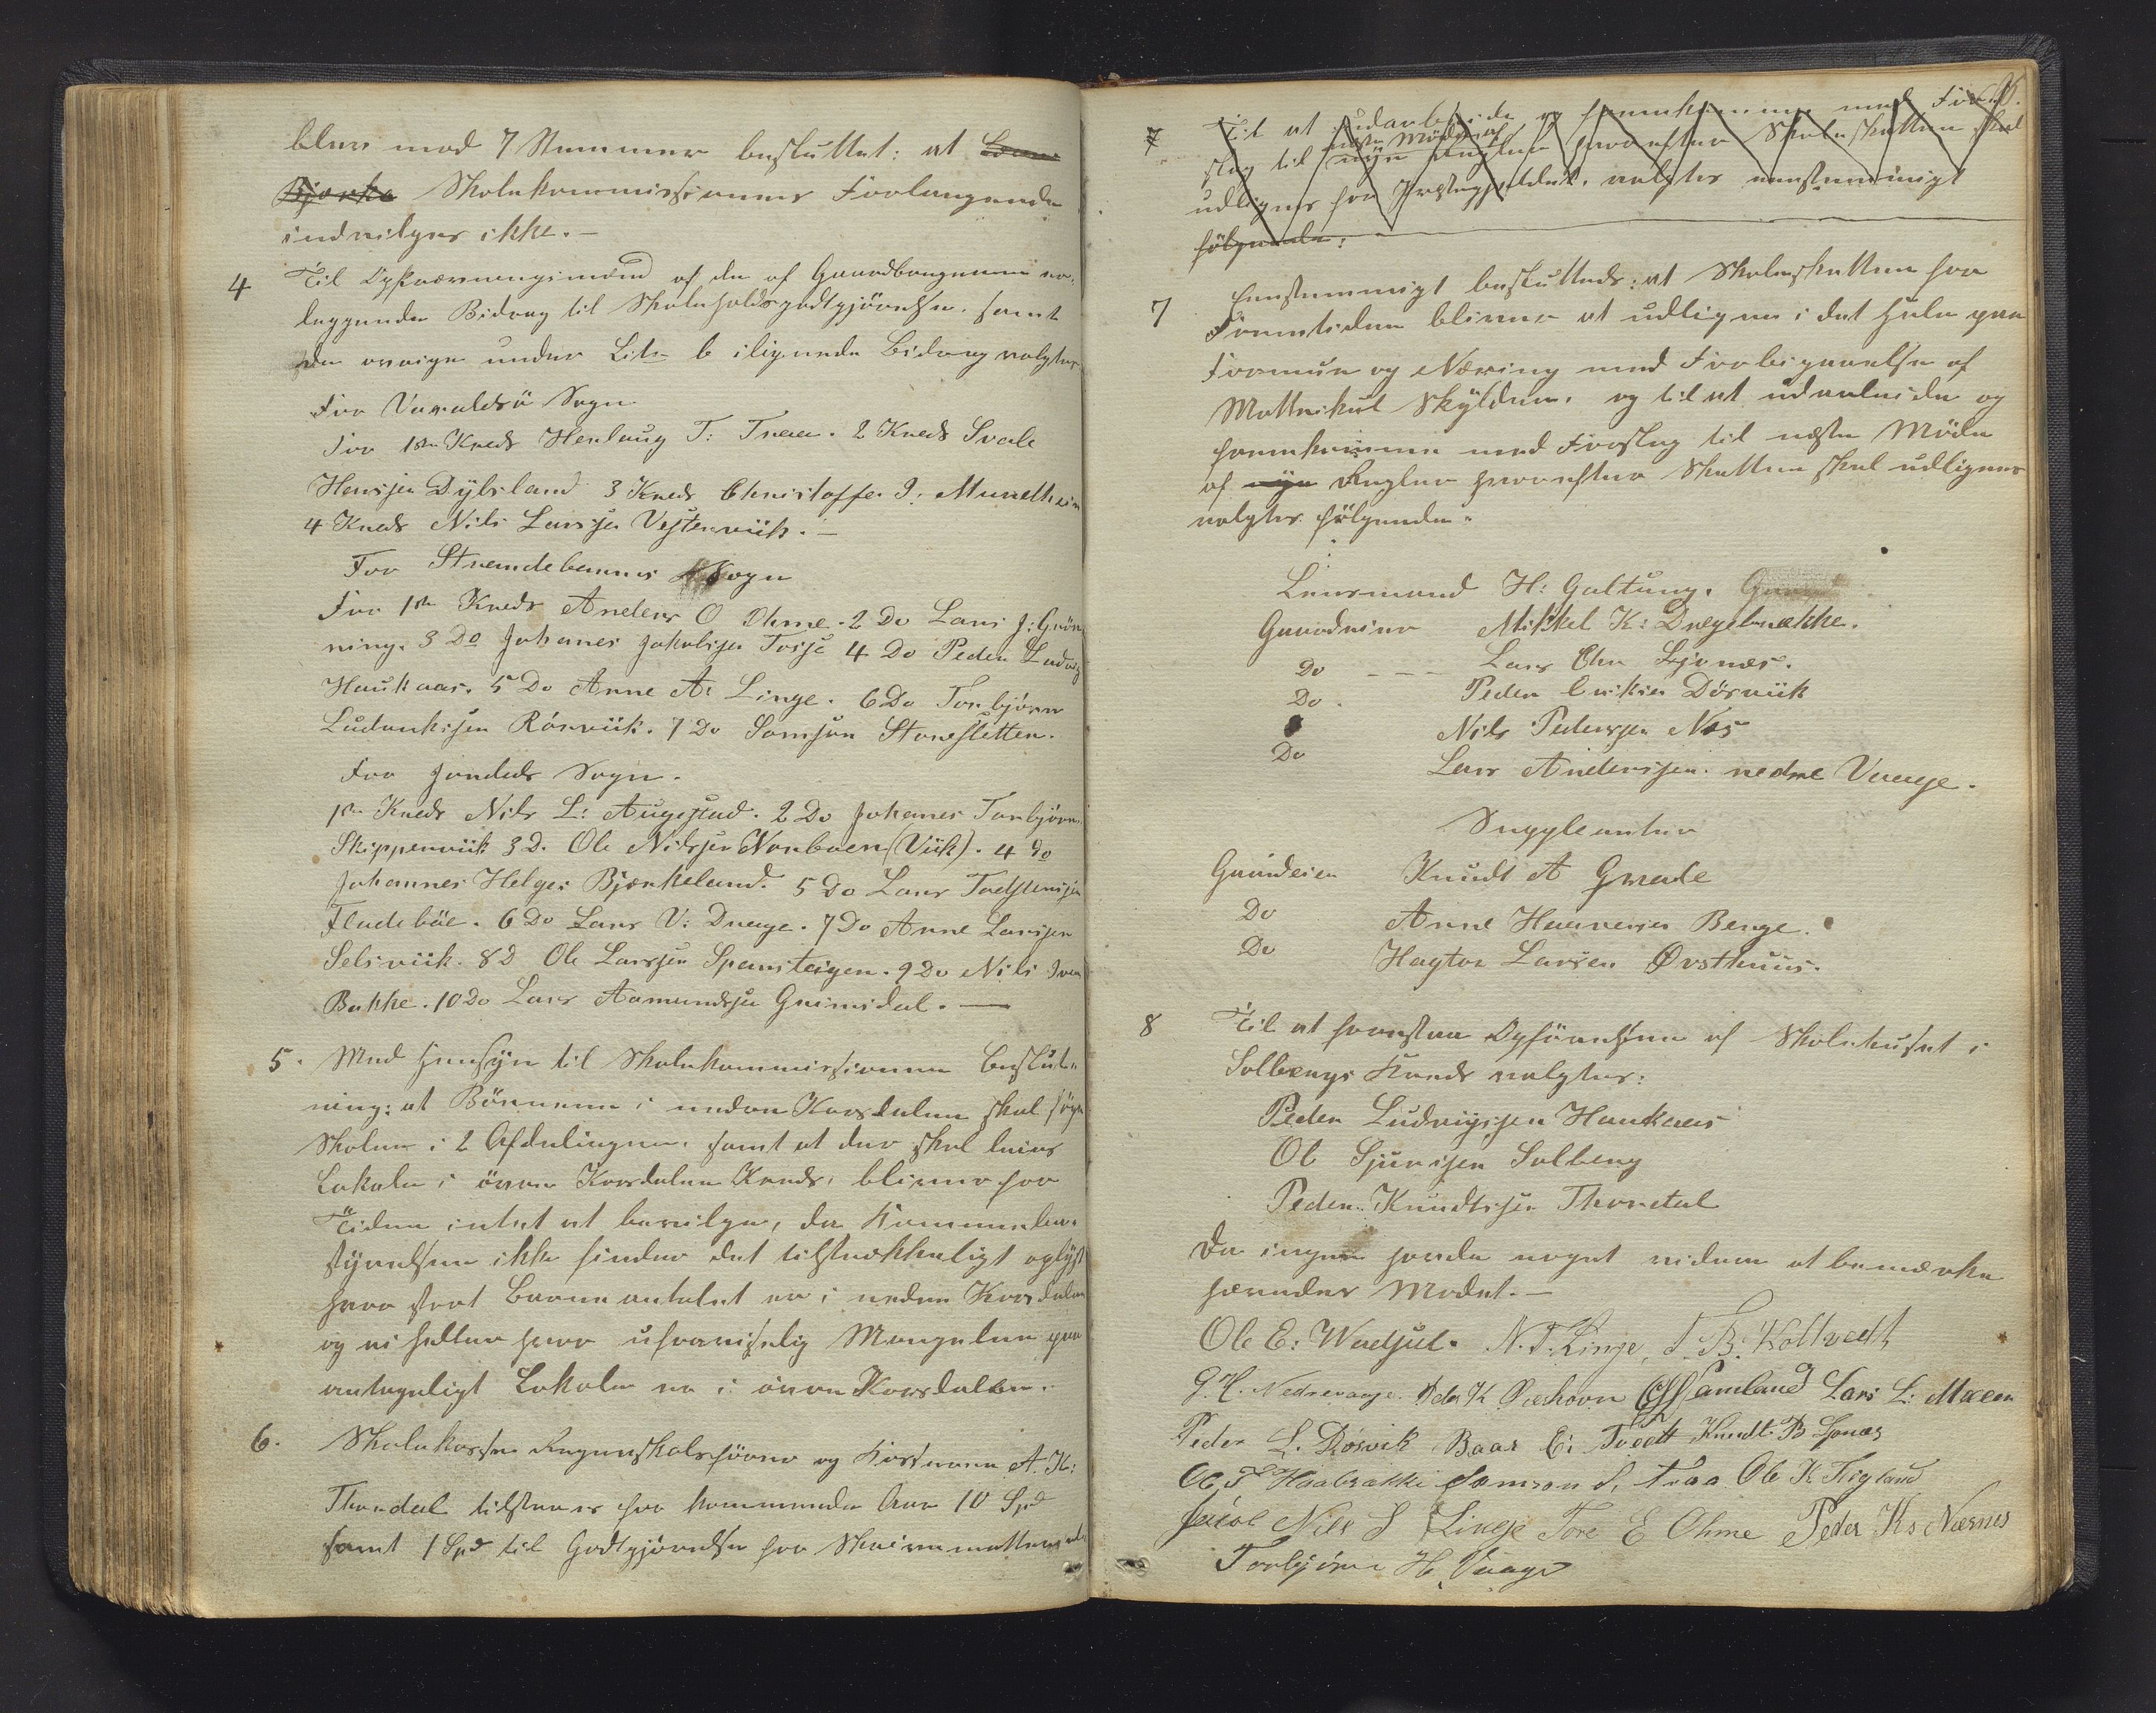 blev med 7 Stemmer besluttet: at
Bjerke Skolekommissionens Forlangende
indvilges ikke.-
4 Til Opskrævningsmænd af de af Gaardbrugerne er-
leggende Bidrag til Skoleholdsgodtgjörelse, samt
de øvrige under Litr b ilignede Bidrag valgtes
For Varaldsö Sogn
For 1ste Kreds Herlaug T: Traae. 2 Kreds Svale
Hensjen Dybsland 3 Kreds Christoffer I: Mundheim
4 Kreds Nils Larsjen Vestervik.-
For Strandebarms Sogn
For 1ste Kreds Anders O Ohme. 2 Do Lars J: Grön-
ning. 3 Do Johanes Jakobsjen Tosje 4 Do Peder Ludvig
Haukaas. 5 Do Arne A: Linge. 6 Do Torbjörn
Ludviksjen Rörviik. 7 Do Samson Storesletten.
For Jondals Sogn.
1ste Kreds Nils L: Augestad. 2 Do Johanes Torbjörns.
Skipperviik 3 D. Ole Nilsjen (Viik). 4 do
Johannes Helges Bjørkeland. 5 Do Lars Todstensjen
Fladebøe. 6 Do Lars V: Drage. 7 Do Arne Larsjen
Selsviik. 8 D Ole Larsjen Spansteigen. 9 Do Nils Iver
Bakke. 10 Do Lars Aamundsjen Grimsdal.-
5. Med Hensyn til Skolekommissionens Beslut-
ning: at Börnene i nedre Korsdalen skal søge
Skolen i 2 Afdelinger, samt at der skal leies
Lokale i övre Korsdalen Kreds, bliver for
Tiden intet at bevilge, da Kommunebe-
styrelsen ikke finder det tilstrækkeligt oplyst
hvor stort Barneantalet er i nedre Korsdalen
og ei heller hvor uforanelig Mangelen paa
antageligt Lokale er i övre Korsdalen.
6. Skolekassens Regnskabsförer og Kasserer A. K:
Thordal tilstaaes for kommende Aar 10 Spd
samt 1 Spd til Godtgjörelse for Skrivematterialer
7 Til at udarbeide og fremkomme med For-
næste Møde af
slag til nye Regler hvorefter Skoleskatten skal
udlignes for Præstegjeldet, valgtes eenstemmigt
følgende:
7 Eenstemmigt besluttedes: at Skoleskatten for
Fremtiden bliver at udligne i det Hele paa
Formue og Næring med Forbigaaelse af
Mattrikul Skylden, og til at udarbeide og
fremkomme med Forslag til næste Möde
af nye Regler hvorefter Skatten skal udlignes
valgtes fölgende:
Lensmand H: Galtung.
Gaardeier Mikkel K: Dregebrække.
Do --- Lars Chr Ljonæs.
Do. Peder Eriksen Dörviik
Nils Pedersjen Nes
Do Lars Andersjen nedre Vaage.
Suppleanter
Gaardeier Knudt A Gravle
Do Arne Haaversen Berge.
Do Hagtor Larsen Ørsthuus.
8 Til at forestaa Opførelsen af Skolehuset i
Solbergs Kreds valgtes:
Peder Ludvigsjen Haukaas
Ole Sjursjen Solberg
Peder Knudtsjen Thordal
Da ingen havde noget videre at bemærke
hævedes Mødet.-
Ole E: Wadjul. N. T. Linge, T. B. Koltvedt
G. H. Nedrevaage. Peder K Samland Lars L: Mælen
Peder L. Dörvik Baar E: Tvedt Knudt B Ljonæs
Ole T Haabrække Samson S. Traa Ole K Tigland
Jacob Nils S Linge Tore E Ohme Peder Ks Næsnes
Torbjörn H. Vaage